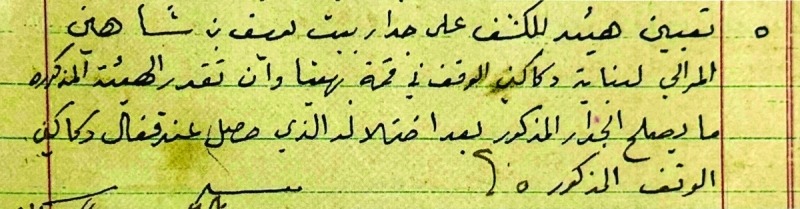 ٥ تعيين هيئة للكشف على جدار بيت يوسف بن شاهين
المرالي لبناية دكاكين الوقف في قمة بهتا وأن تقدر الهيئة المذكورة
ما يصلح الجدار المذكور بعد اختلاله الذي حصل عند قفال دكاكين
الوقف المذكور ٥